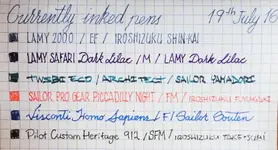 Currently inked pens 19th July 16
LAMY 2000 / EF / IROSHIZUKU SHIN-KAI
LAMY SAFARI Dark Lilac / M / LAMY Dark Lilac
TWSBI ECO / ARCHITECT / SAILOR YAMADORI
SAILOR PRO GEAR PICCADILLY NIGHT / FM / IROSHIZUKU FUYUGAKI
Visconti Homo Sapiens / F / Sailor Souten
Pilot Custom Heritage 912 / SFM / IROSHIZUKU TAKE-SUMI